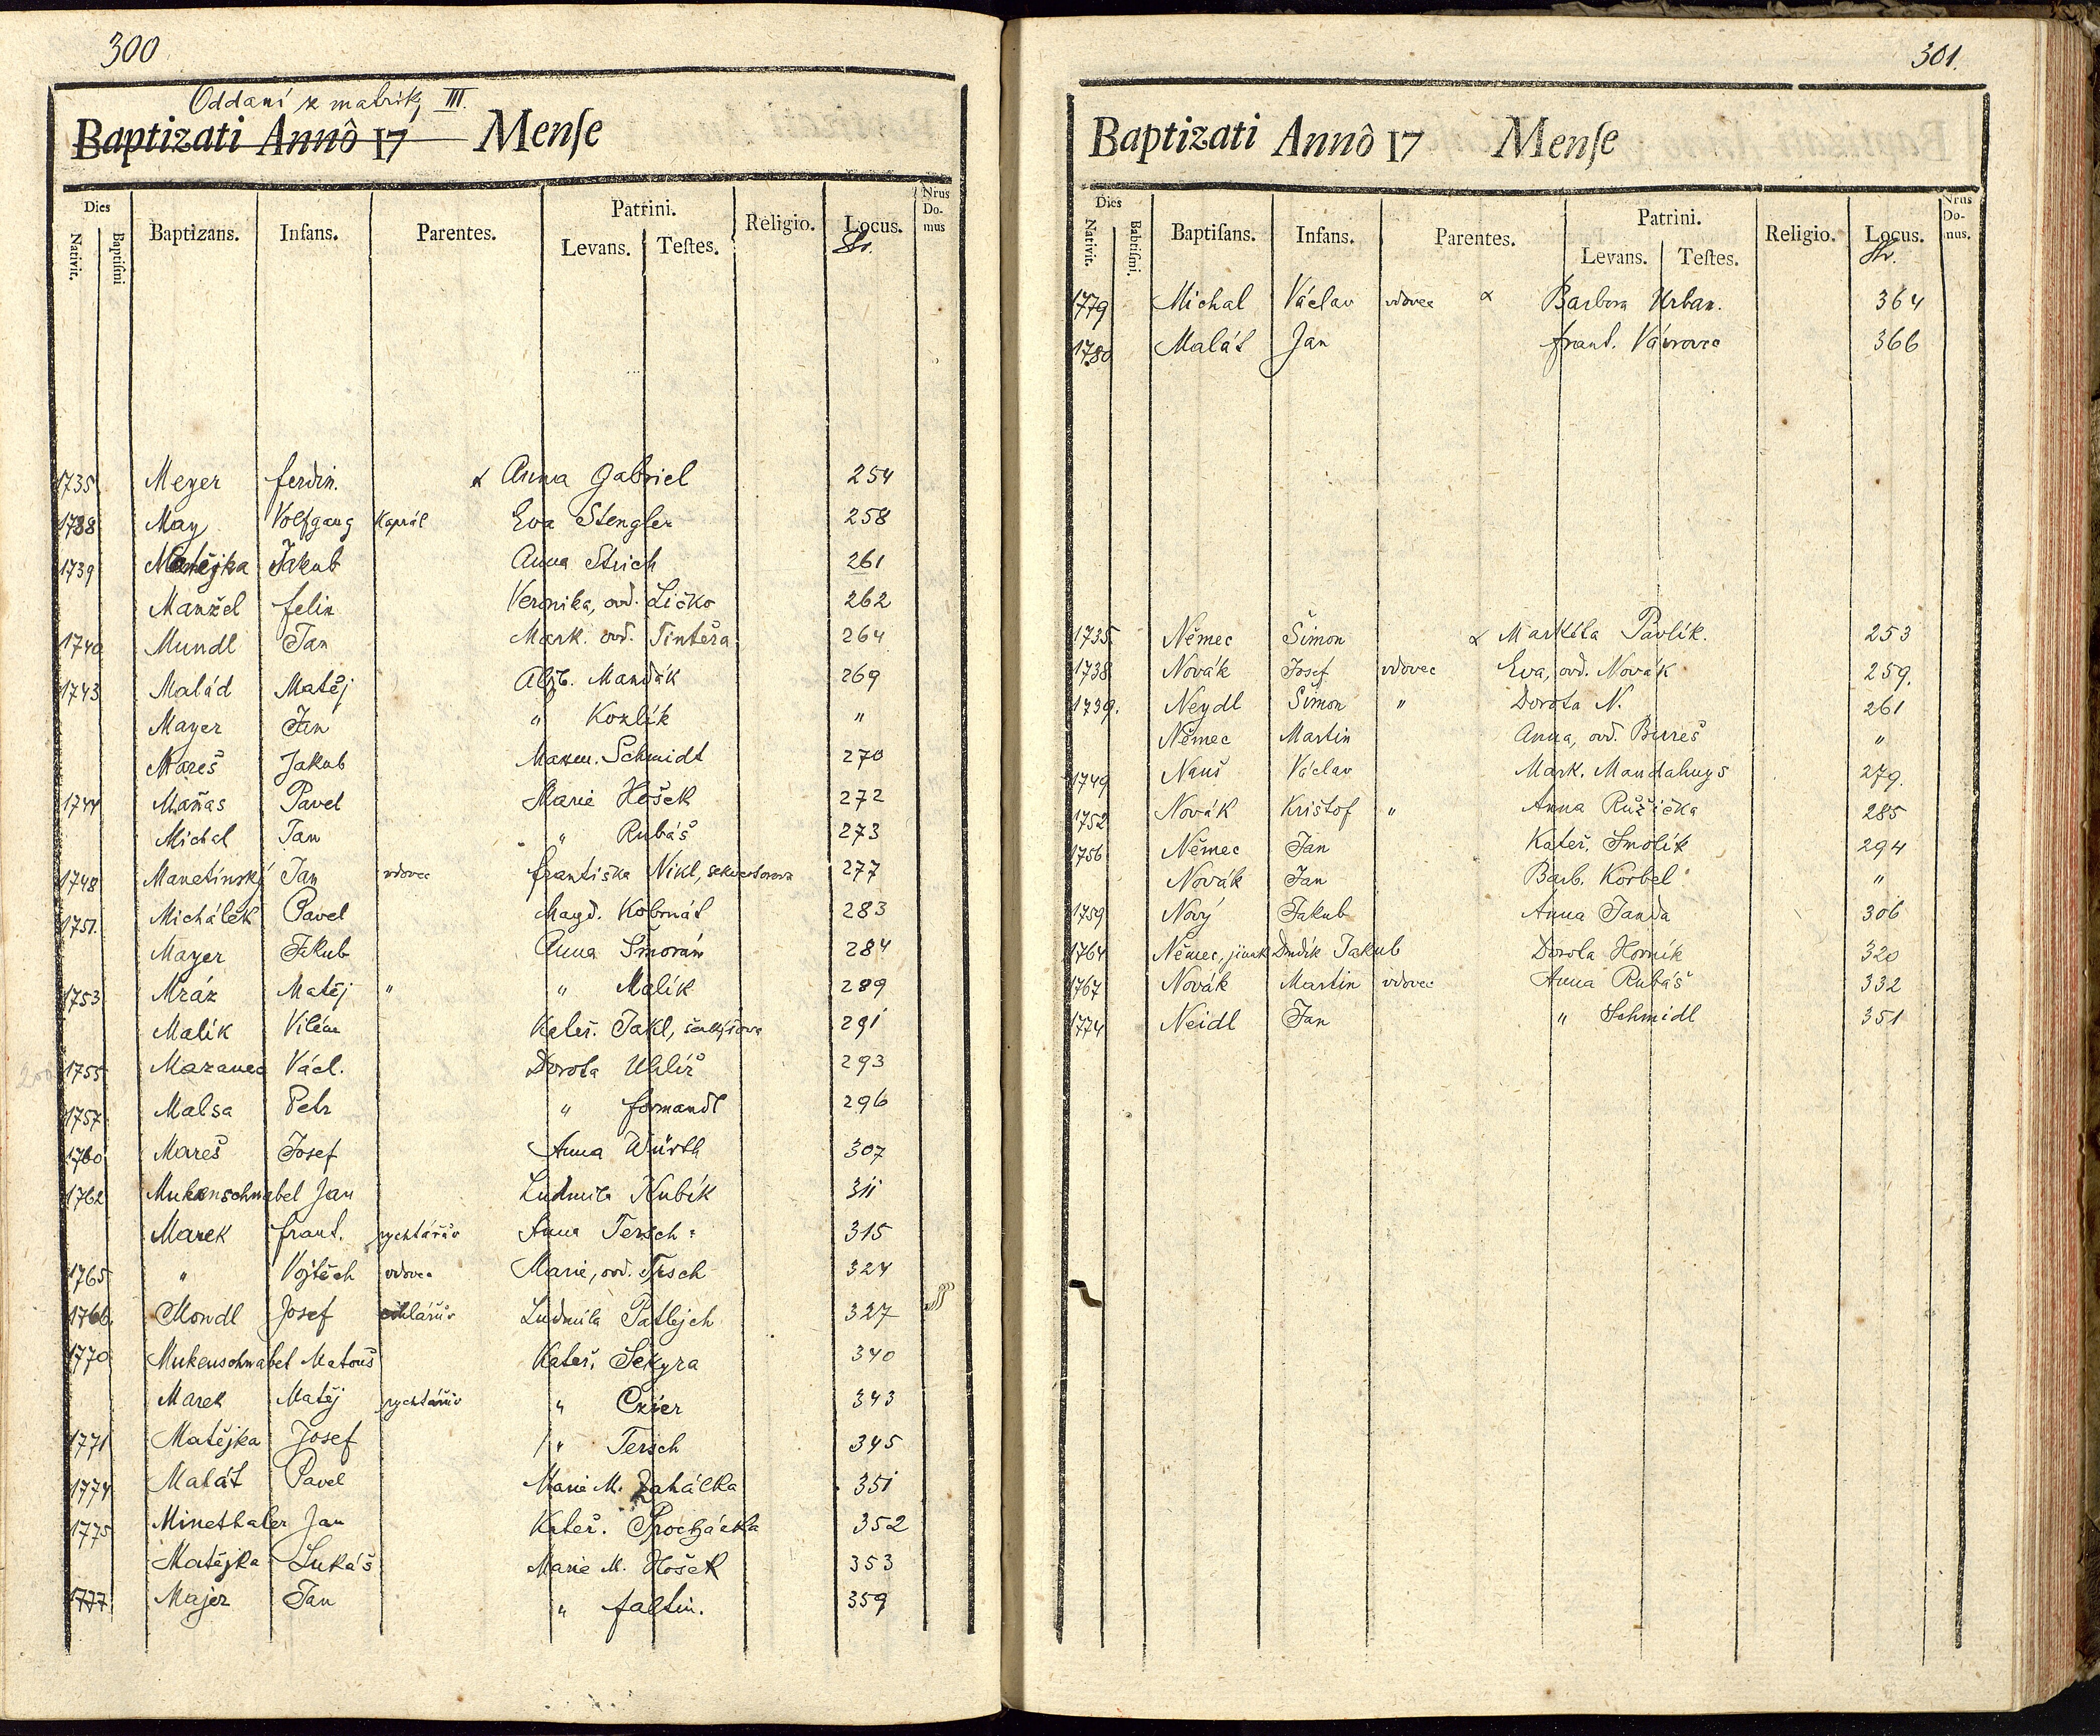 300
Oddaní z matriky III.
Baptizati Annô 17 Menſe
Dies Nativit. Baptiſmi Baptizans. Infans. Parentes. Patrini. Levans. Teſtes. Religio. Locus. Nrus Domus
Str.
1735 Meyer Ferdin. x Anna Gabriel 254
1738 May Volfgang Kaprál Eva Stengler 258
1739 Matějka Jakub Anna Strich 261
Manžel Felix Veronika, vd. Ličko 262
1740 Mundl Jan Mark. vd. Tintěra 264
1743 Malád Matěj Alžb. Mandák 269
Mayer Jan " Kozlík "
Mareš Jakub Maxm. Schmidt 270
1744 Maňas Pavel Marie Hošek 272
Michal Jan " Rubáš 273
1748 Manetínský Jan vdovec Františka Nikl, sekvestorova 277
1751. Michálek Pavel Magd. Kobrnát 283
Mayer Jakub Anna Smorám 284
1753 Mráz Matěj " " Malík 289
Malík Vilém Kateř. Jakl, 291
1755 Mazanec Václ. Dorota Uhlíř 293
1757 Malsa Petr " Formandl 296
1760 Mareš Josef Anna Würth 307
1762 Mukenschnabel Jan Ludmila Kubík 311
Marek Frant. rychtářův Anna Tersch 315
1765 " Vojtěch vdovec Marie, vd. Tersch 324
1766. Mondl Josef Ludmila Patlejch 327
1770 Mukenschnabel Matouš Kateř. Sekyra 340
Marek Matěj rychtářův " Exner 343
1771 Matějka Josef " Tersch 345
1774 Malát Pavel Marie M. Zahálka 351
1775 Minethaler Jan Kateř. Procházka 352
Matějka Lukáš Marie M. Hošek 353
1777 Majer Jan " Faltin. 359
301.
Baptizati Annô 17 Menſe
Dies Nativit. Babtiſmi. Baptiſans. Infans. Parentes. Patrini. Levans. Teſtes. Religio. Locus. Nrus Domus.
Str.
1779 Michal Václav vdovec x Barbora Urban. 364
1780 Malát Jan Frant. Vávrovec 366
1735. Němec Šimon x Markéta Pavlík. 253
1738 Novák Josef vdovec Eva, vd. Novák 259.
1739. Neydl Šimon " Dorota N. 261
Němec Martin Anna, vd. Bureš "
1749 Nauš Václav Mark. Mandahuys 279.
1752 Novák Krištof " Anna Růžička 285
1756 Němec Jan Kateř. Smolík 294
Novák Jan Barb. Körbel "
1759 Nový Jakub Anna Janda 306
1764 Němec, jinak Dudík Jakub Dorota Horník 320
1767 Novák Martin vdovec Anna Rubáš 332
1774 Neidl Jan " Schmidl 351